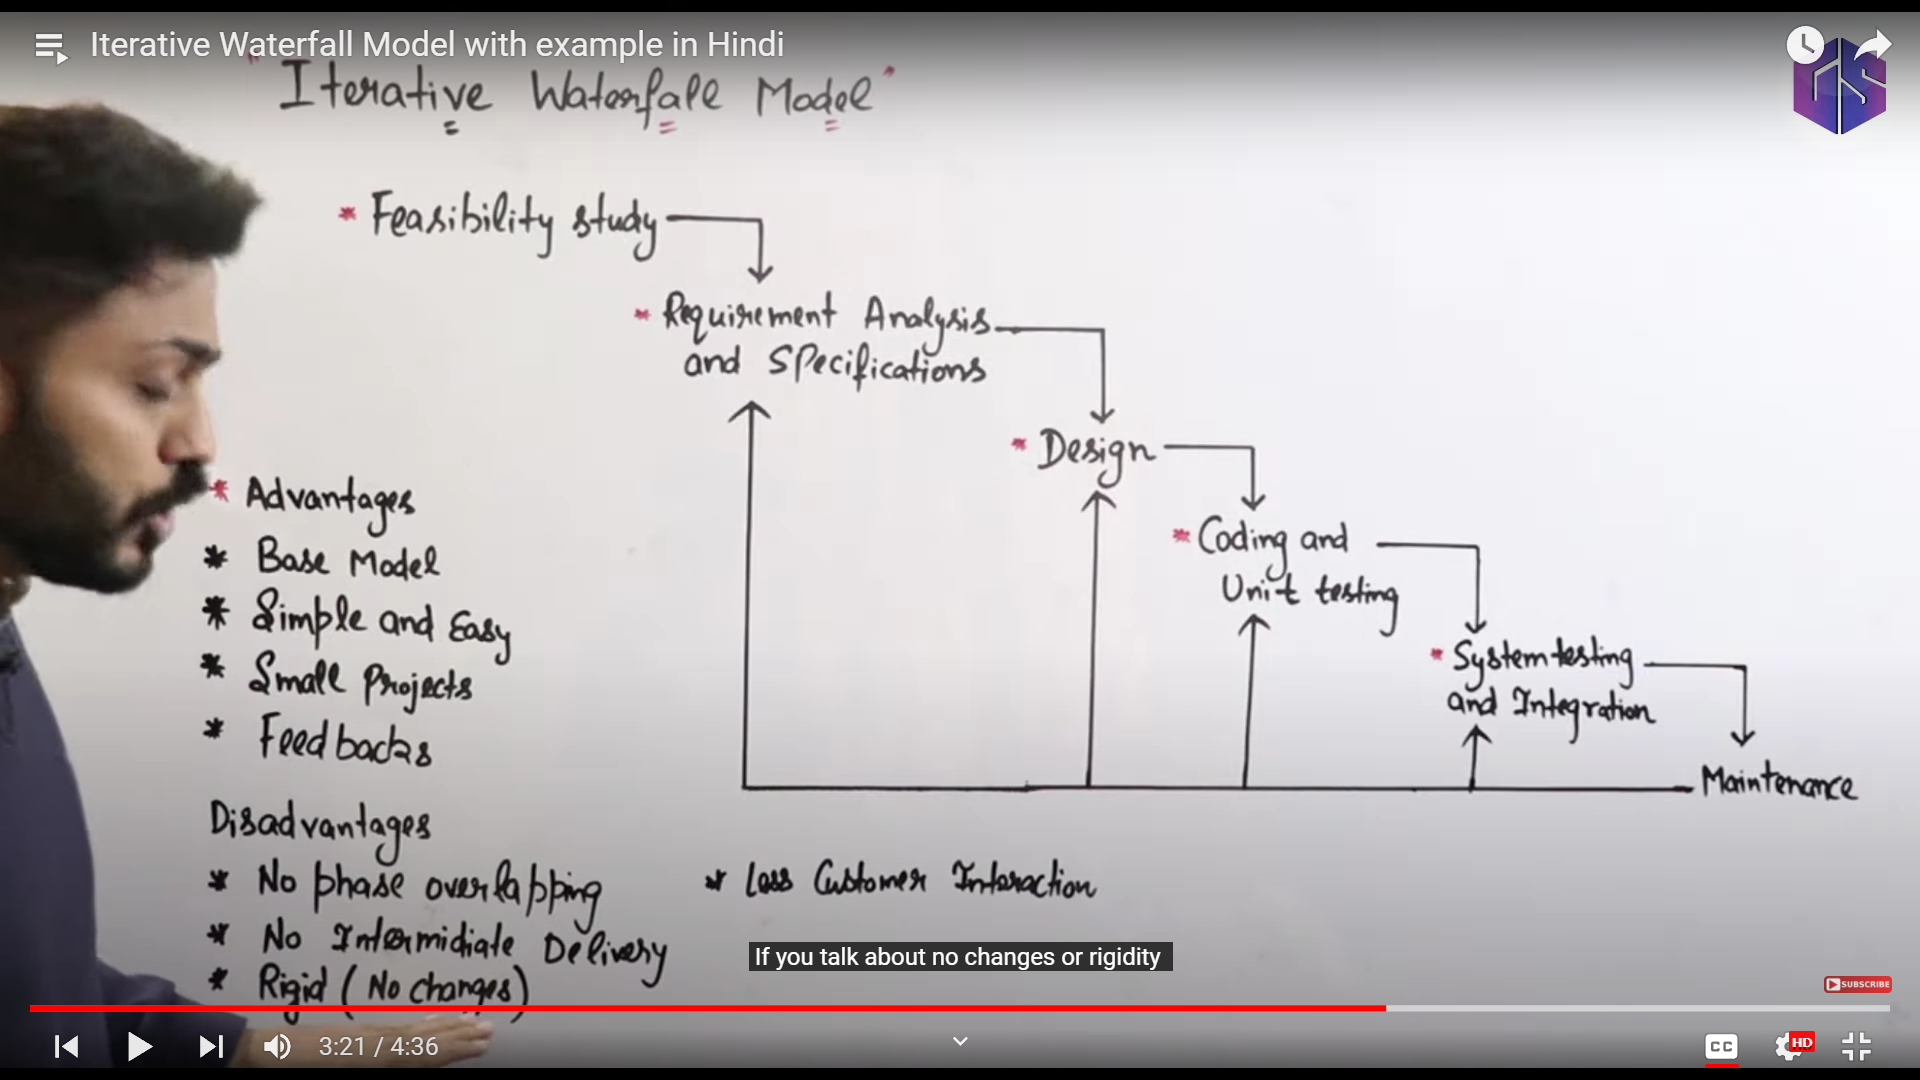 Iterative Waterfall Model with example in Hindi
"Iterative Waterfall Model"
* Feasibility study
* Requirement Analysis
and Specifications
* Design
* Coding and
Unit testing
* System testing
and Integration
Maintenance
* Advantages
* Base Model
* Simple and Easy
* Small Projects
* Feedbacks
Disadvantages
* No phase overlapping
* No Intermidiate Delivery
* Rigid (No changes)
* Less Customer Interaction
If you talk about no changes or rigidity
SUBSCRIBE
3:21 / 4:36
CC
HD